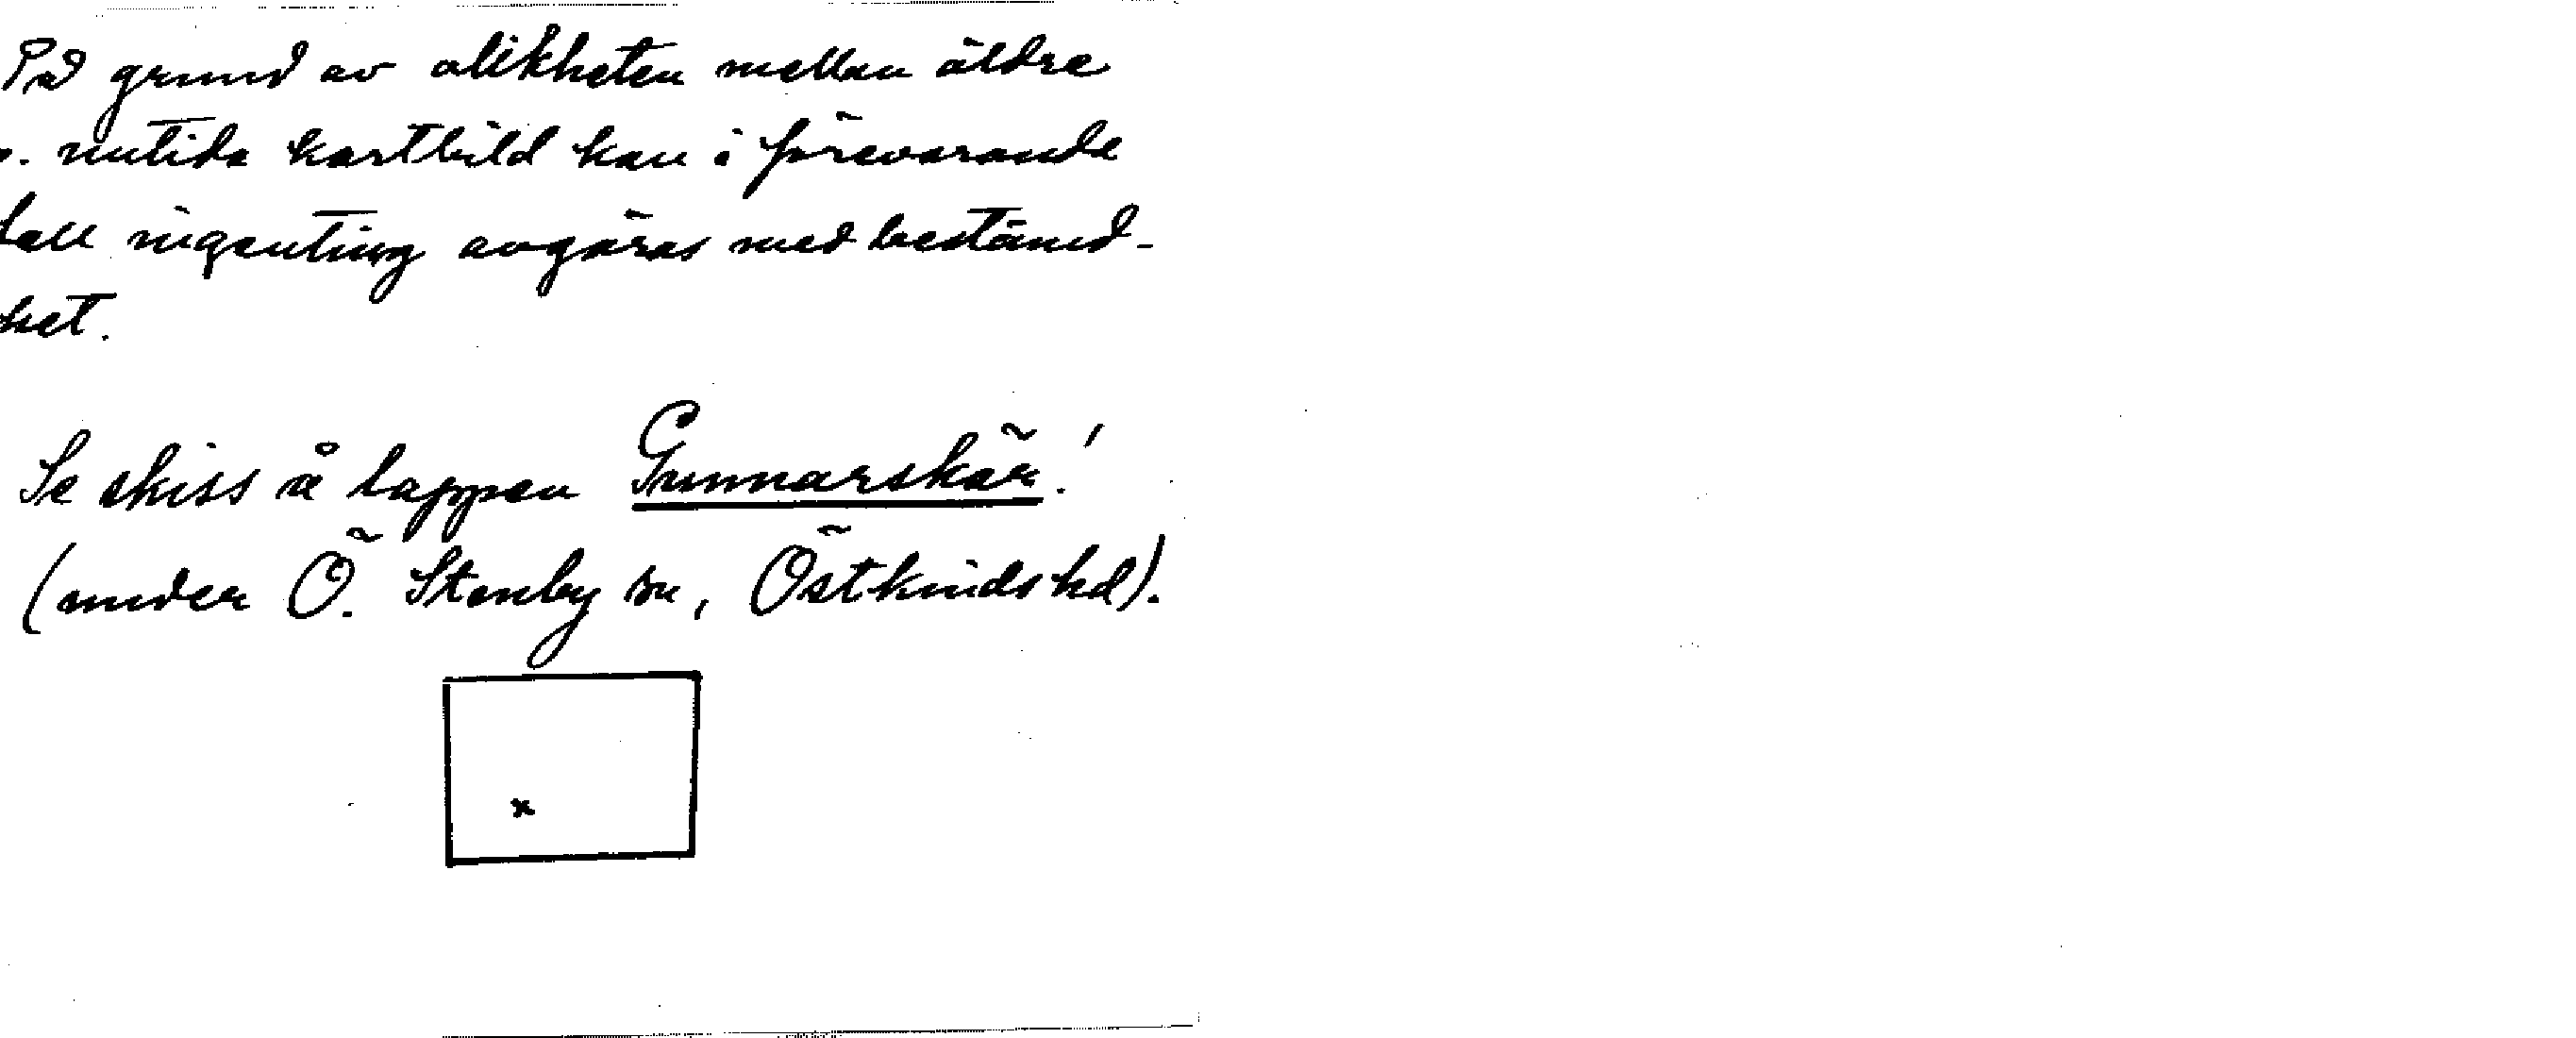 På grund av olikheten mellan äldre
o. nutida kartbild kan i förevarande
fall ingenting avgöras med bestämd-
het.
Se skiss å lappen Gunnarskär!
(under Ö. Stenby sn, Östkinds hd).
x